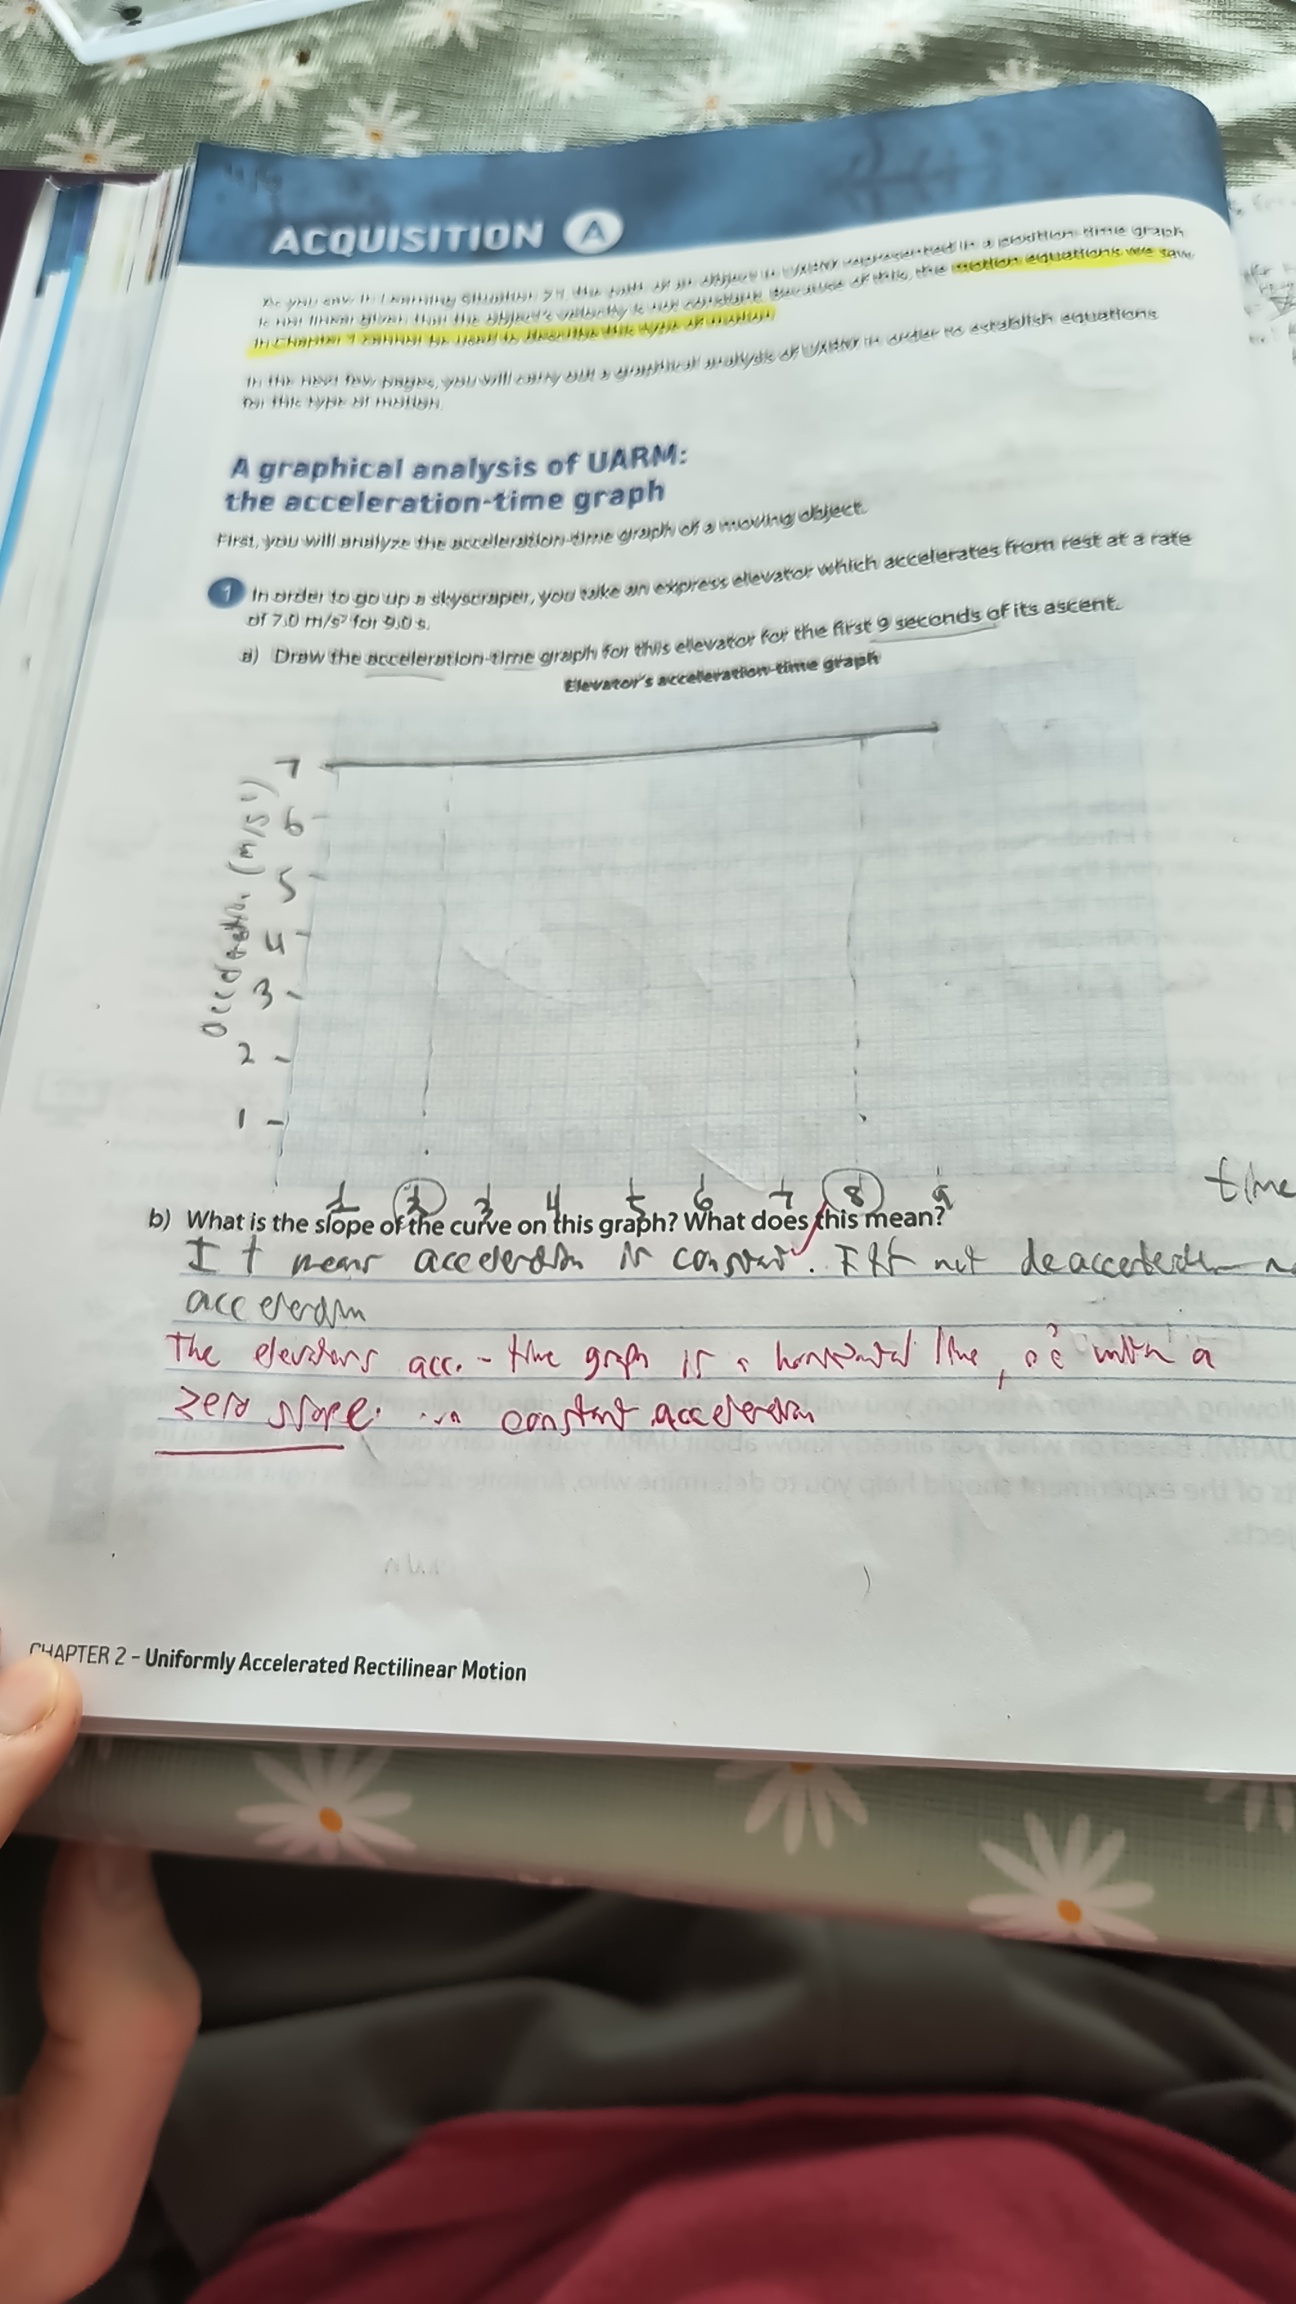 ACQUISITION A
represented in a position-time graph
is not linear given that the object's velocity is not constant. Because of this, the motion equations we saw
in Chapter 1 cannot be used to describe this type of motion.
In the next few pages, you will carry out a graphical analysis of UARM in order to establish equations
for this type of motion.
A graphical analysis of UARM:
the acceleration-time graph
First, you will analyze the acceleration-time graph of a moving object.
1 In order to go up a skyscraper, you take an express elevator which accelerates from rest at a rate
of 7.0 m/s² for 9.0 s.
a) Draw the acceleration-time graph for this elevator for the first 9 seconds of its ascent.
Elevator's acceleration-time graph
7
6
5
4
3
2
1
(m/s²)
1 2 3 4 5 6 7 8 9
time
b) What is the slope of the curve on this graph? What does this mean?
It means acceleration is constant. not
acceleration
The elevators acc. - time graph is a horizontal line, with a
zero slope. constant acceleration
CHAPTER 2 – Uniformly Accelerated Rectilinear Motion